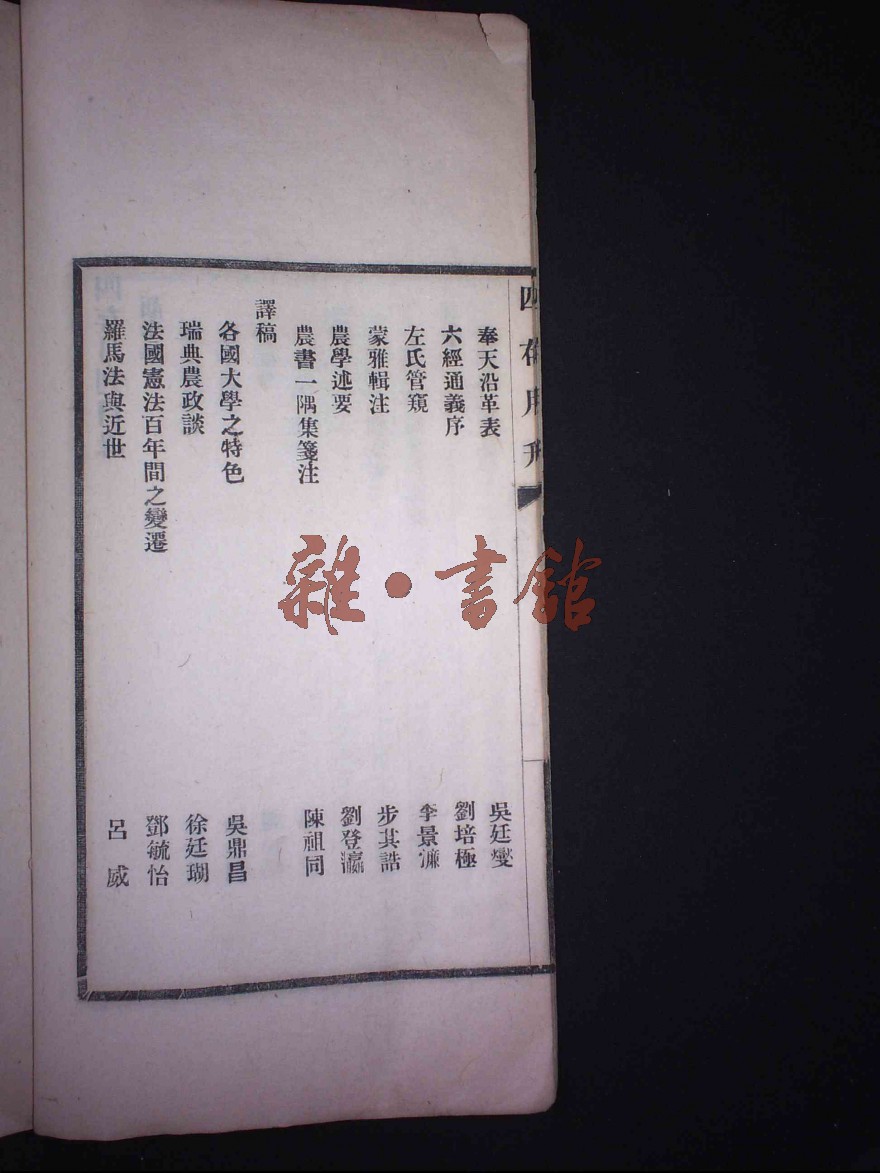 四存月刊
奉天沿革表 吳廷燮
六經通義序 劉培極
左氏管窺 李景濂
蒙雅輯注 步其誥
農學述要 劉登瀛
農書一隅集箋注 陳祖同
譯稿
各國大學之特色 吳鼎昌
瑞典農政談 徐廷瑚
法國憲法百年間之變遷 鄧毓怡
羅馬法與近世 呂威
雜·書館